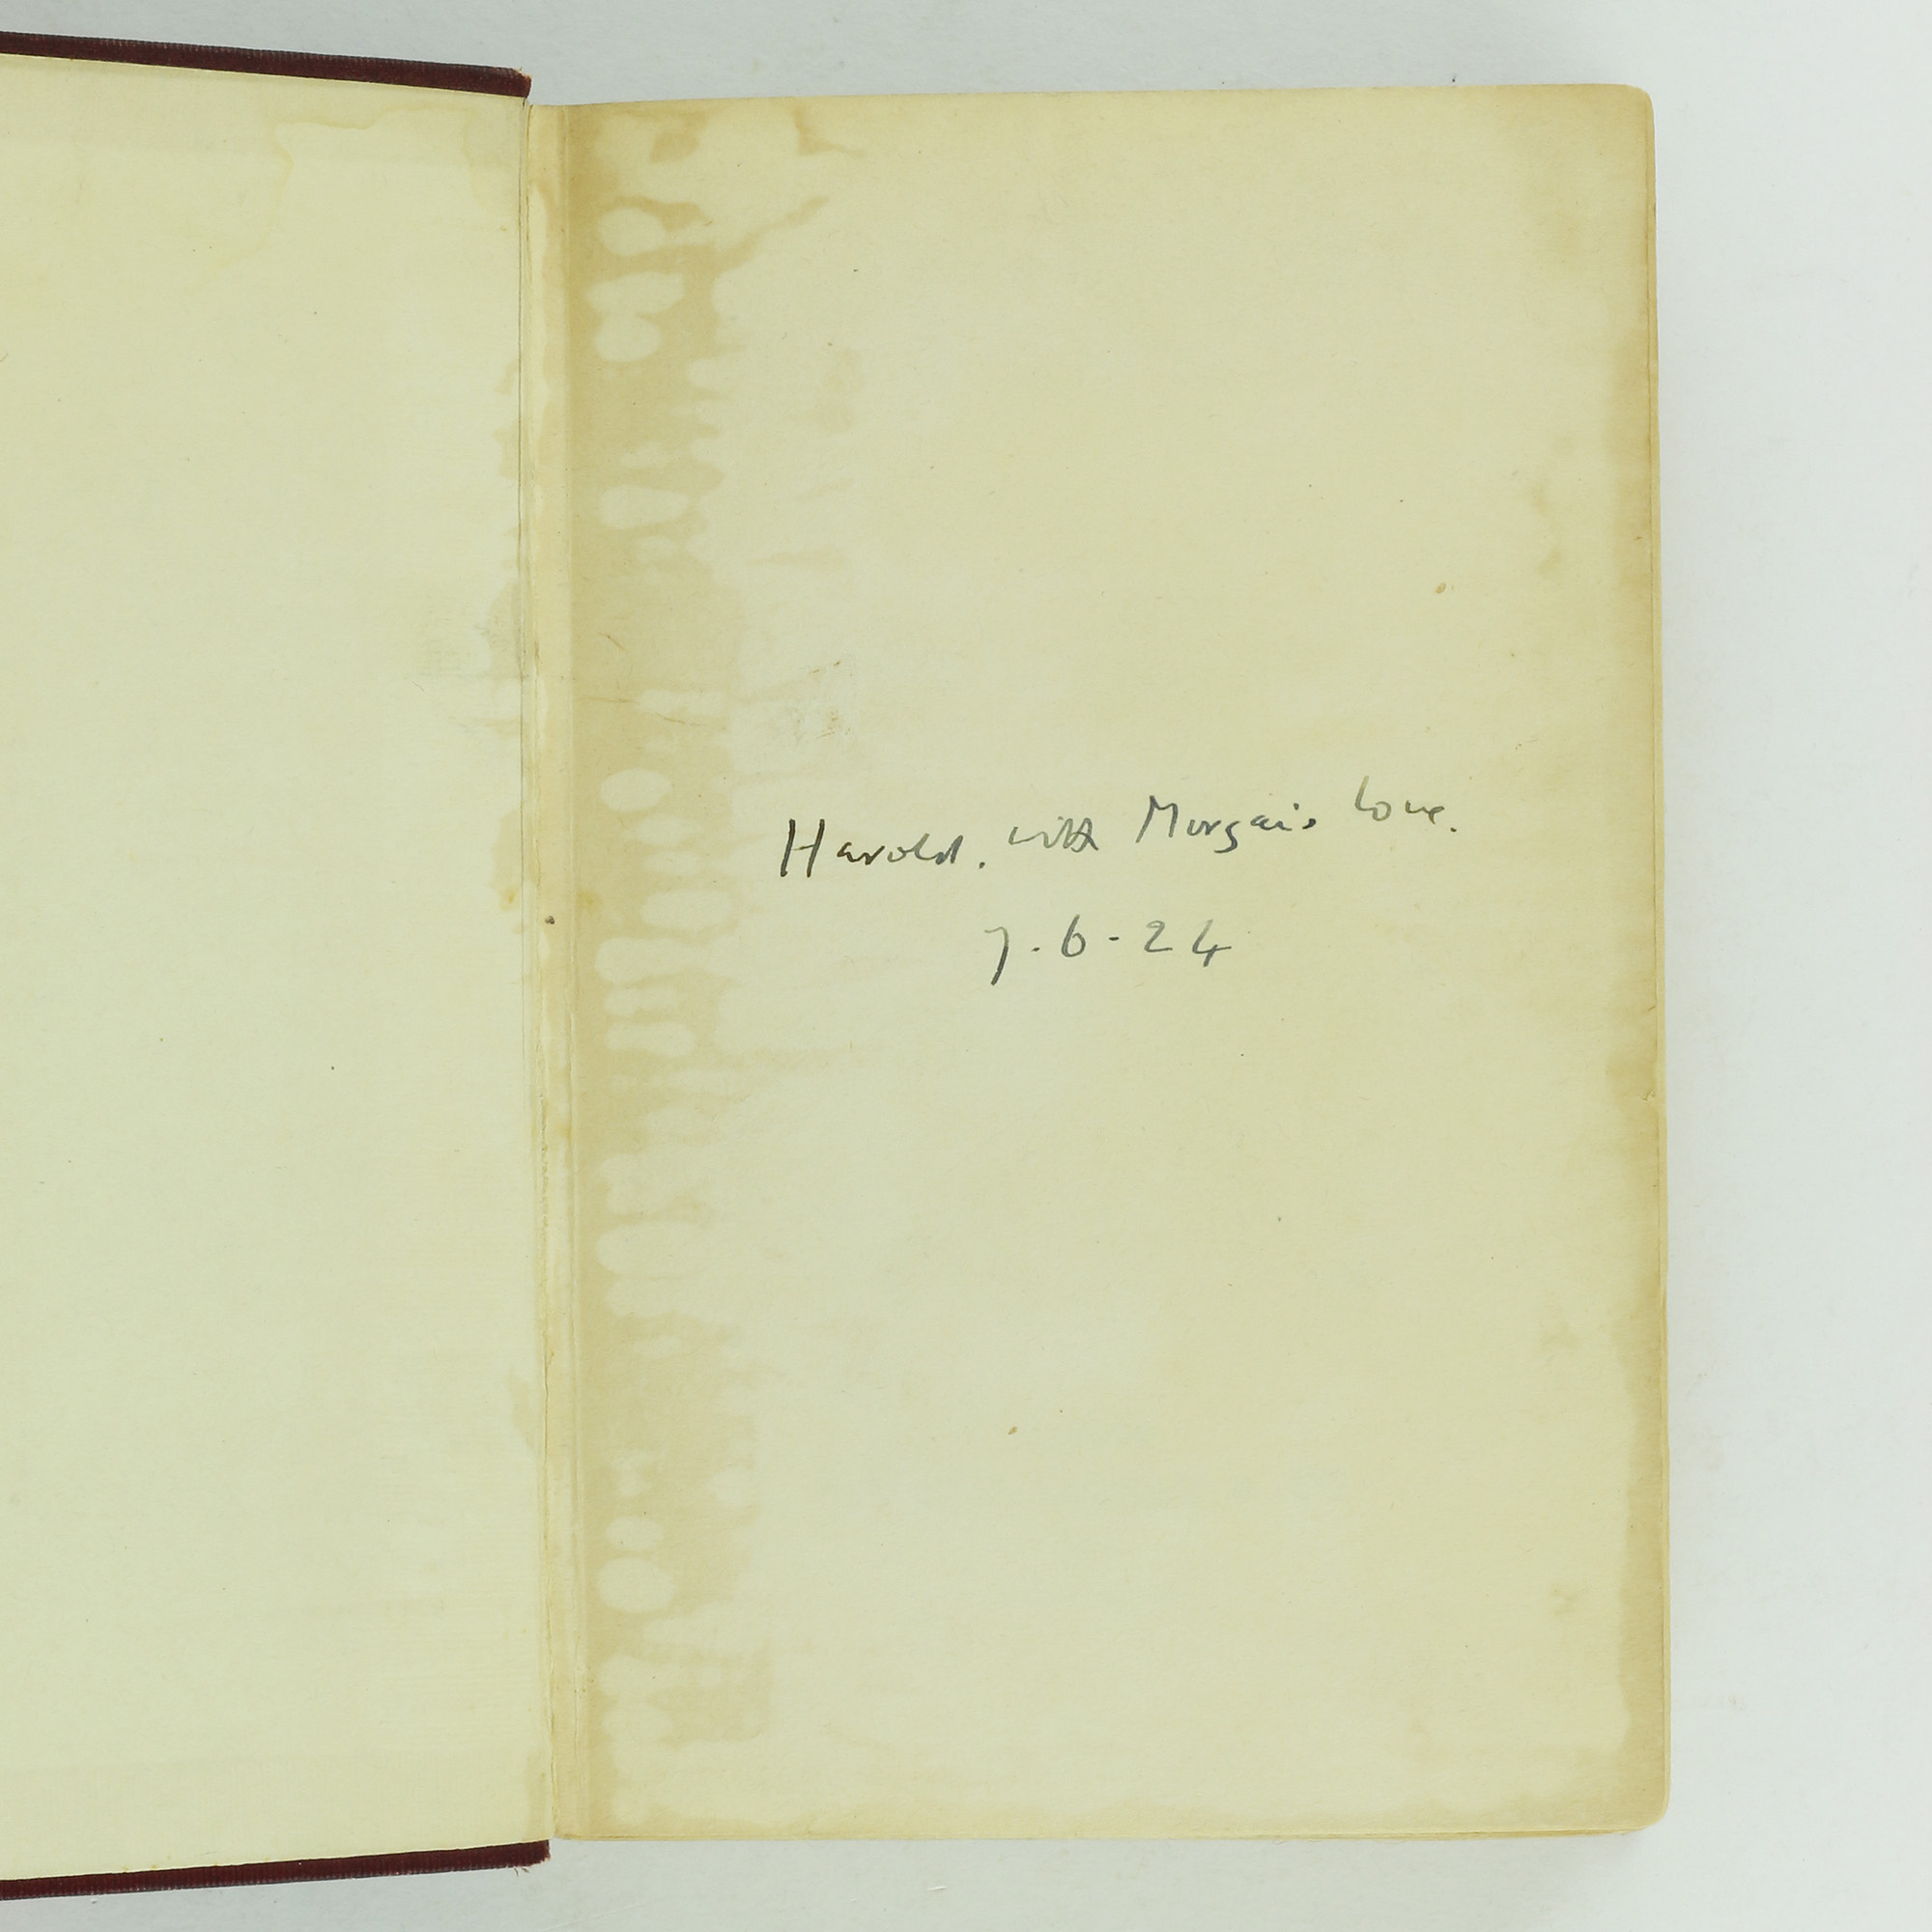 Harold. with Morgan's love.
7-6-24